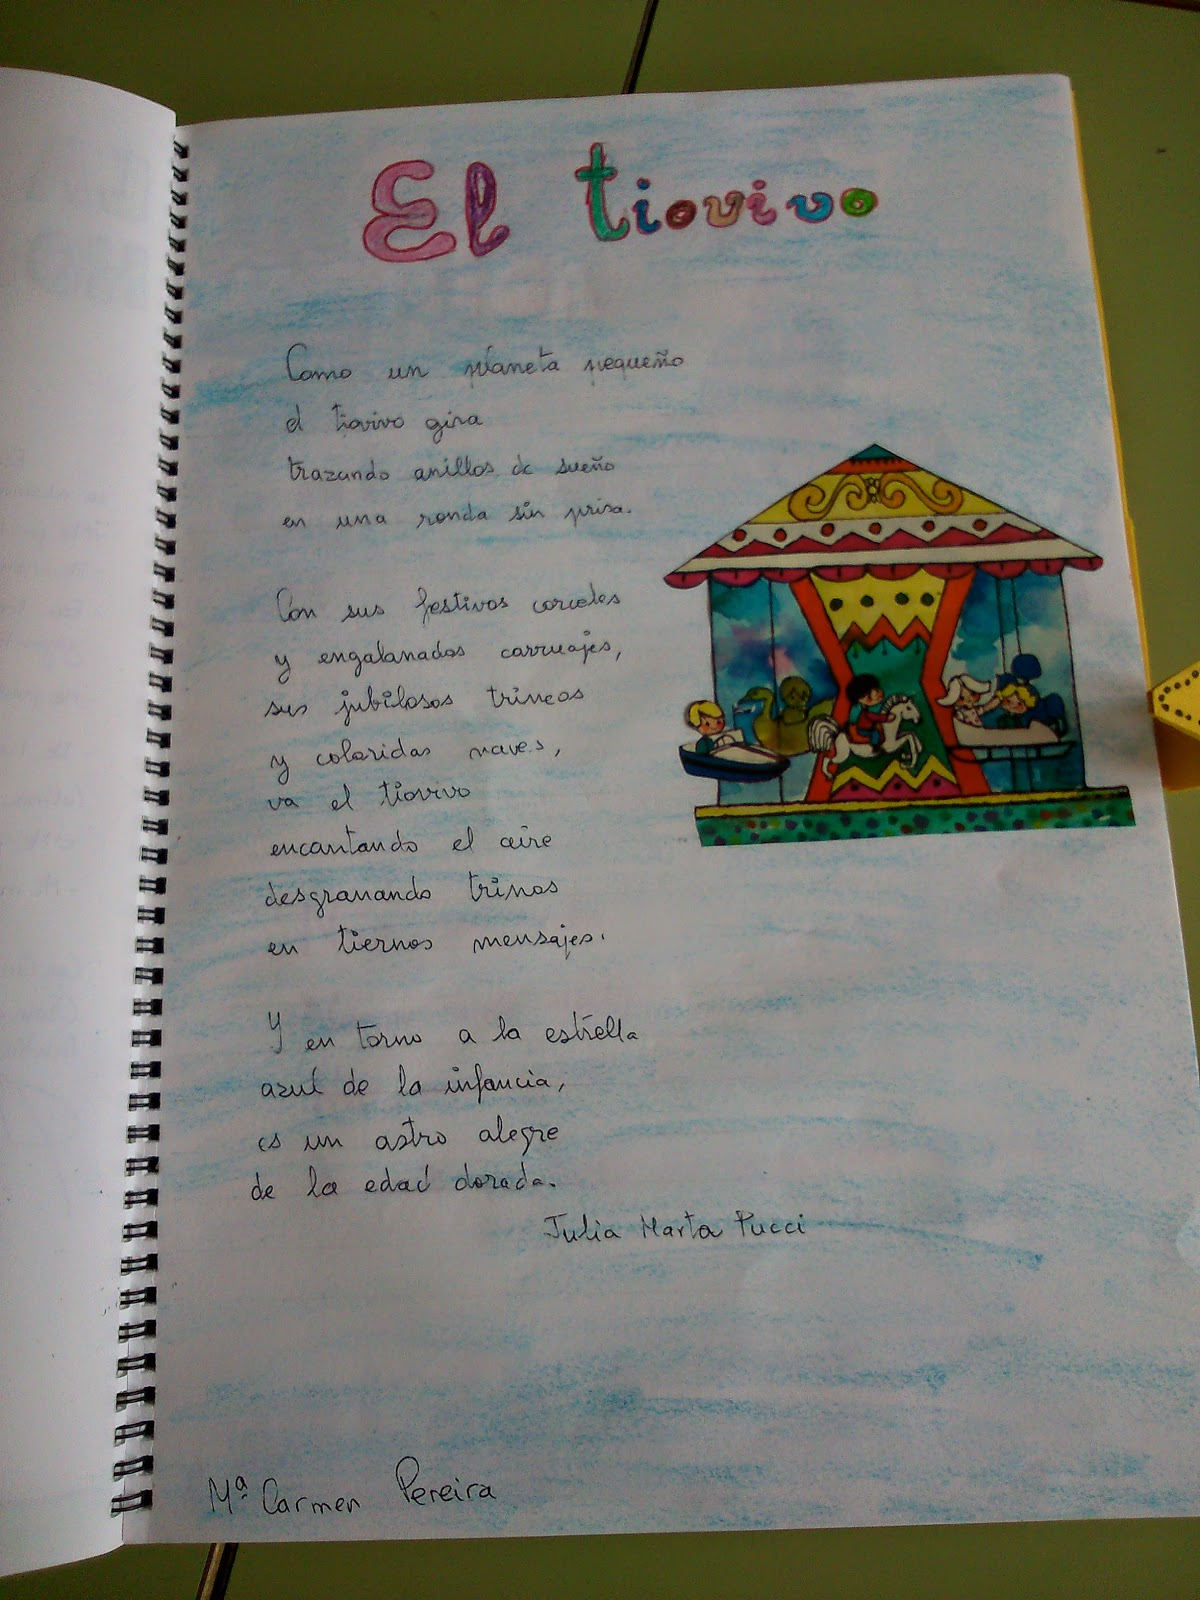 El tiovivo
Como un planeta pequeño
el tiovivo gira
trazando anillos de sueño
en una ronda sin prisa.
Con sus festivos corceles
y engalanados carruajes,
sus jubilosos trineos
y coloridas naves,
va el tiovivo
encantando el aire
desgranando trinos
en tiernos mensajes.
Y en torno a la estrella
azul de la infancia,
es un astro alegre
de la edad dorada.
Julia Marta Pucci
Mª Carmen Pereira